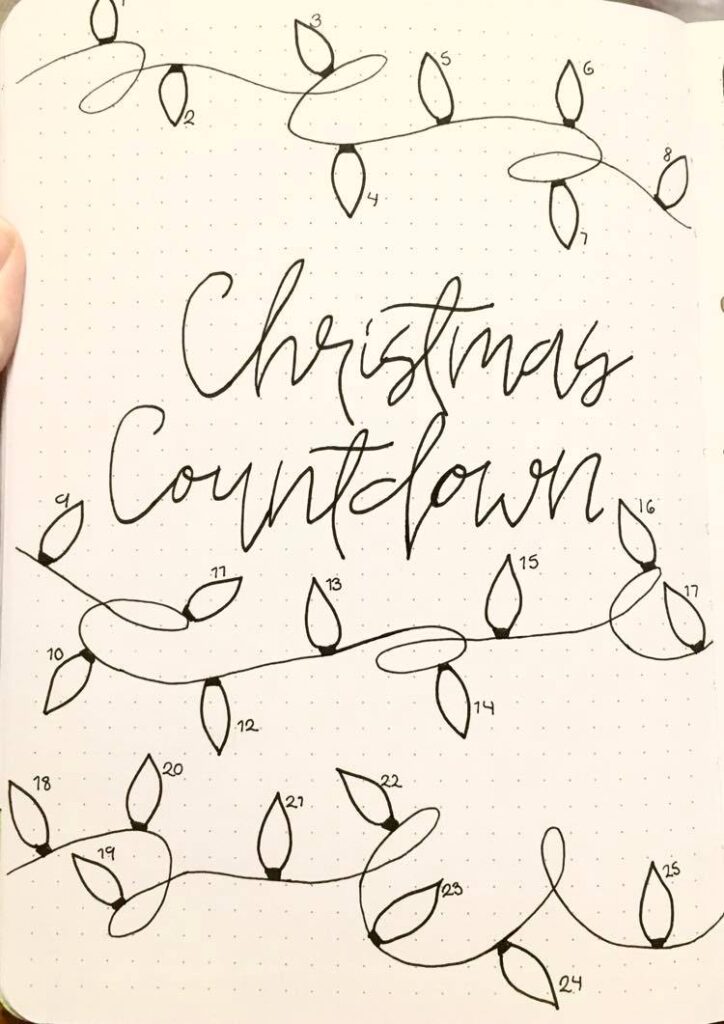 1
3
2
5
6
4
8
7
Christmas
Countdown
9
16
11
13
15
17
10
12
14
18
20
22
21
19
23
25
24